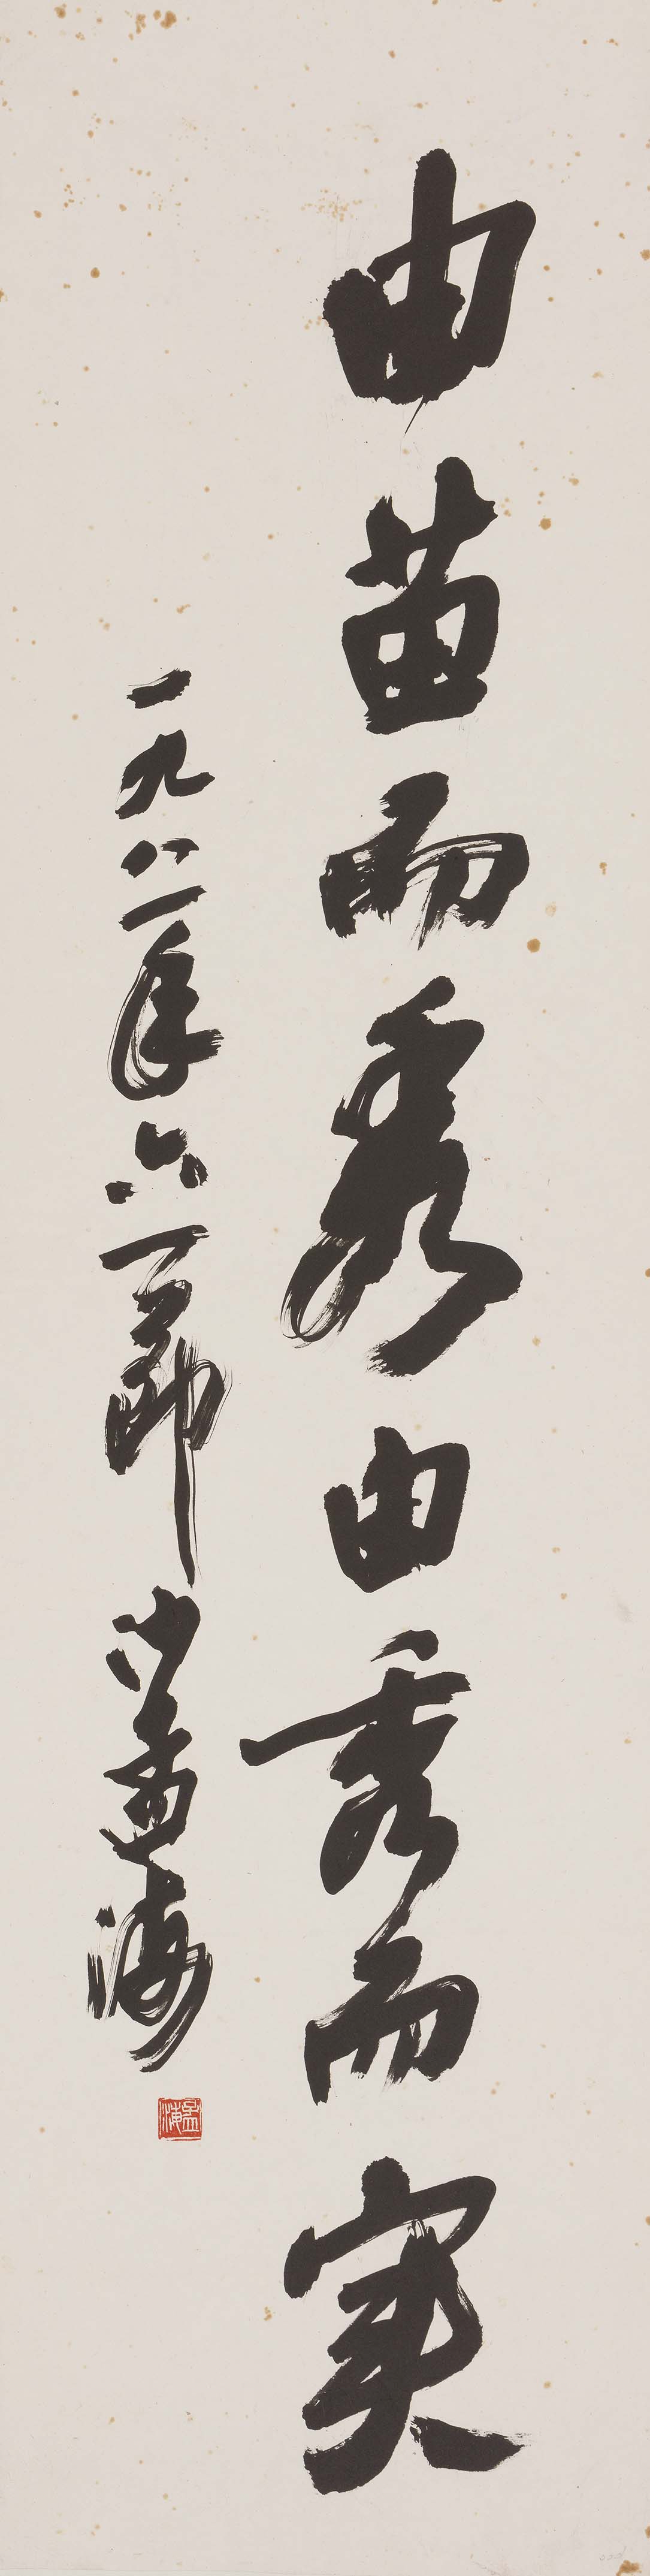 由苗而秀由秀而实
一九八一年六一節 沙孟海
孟海